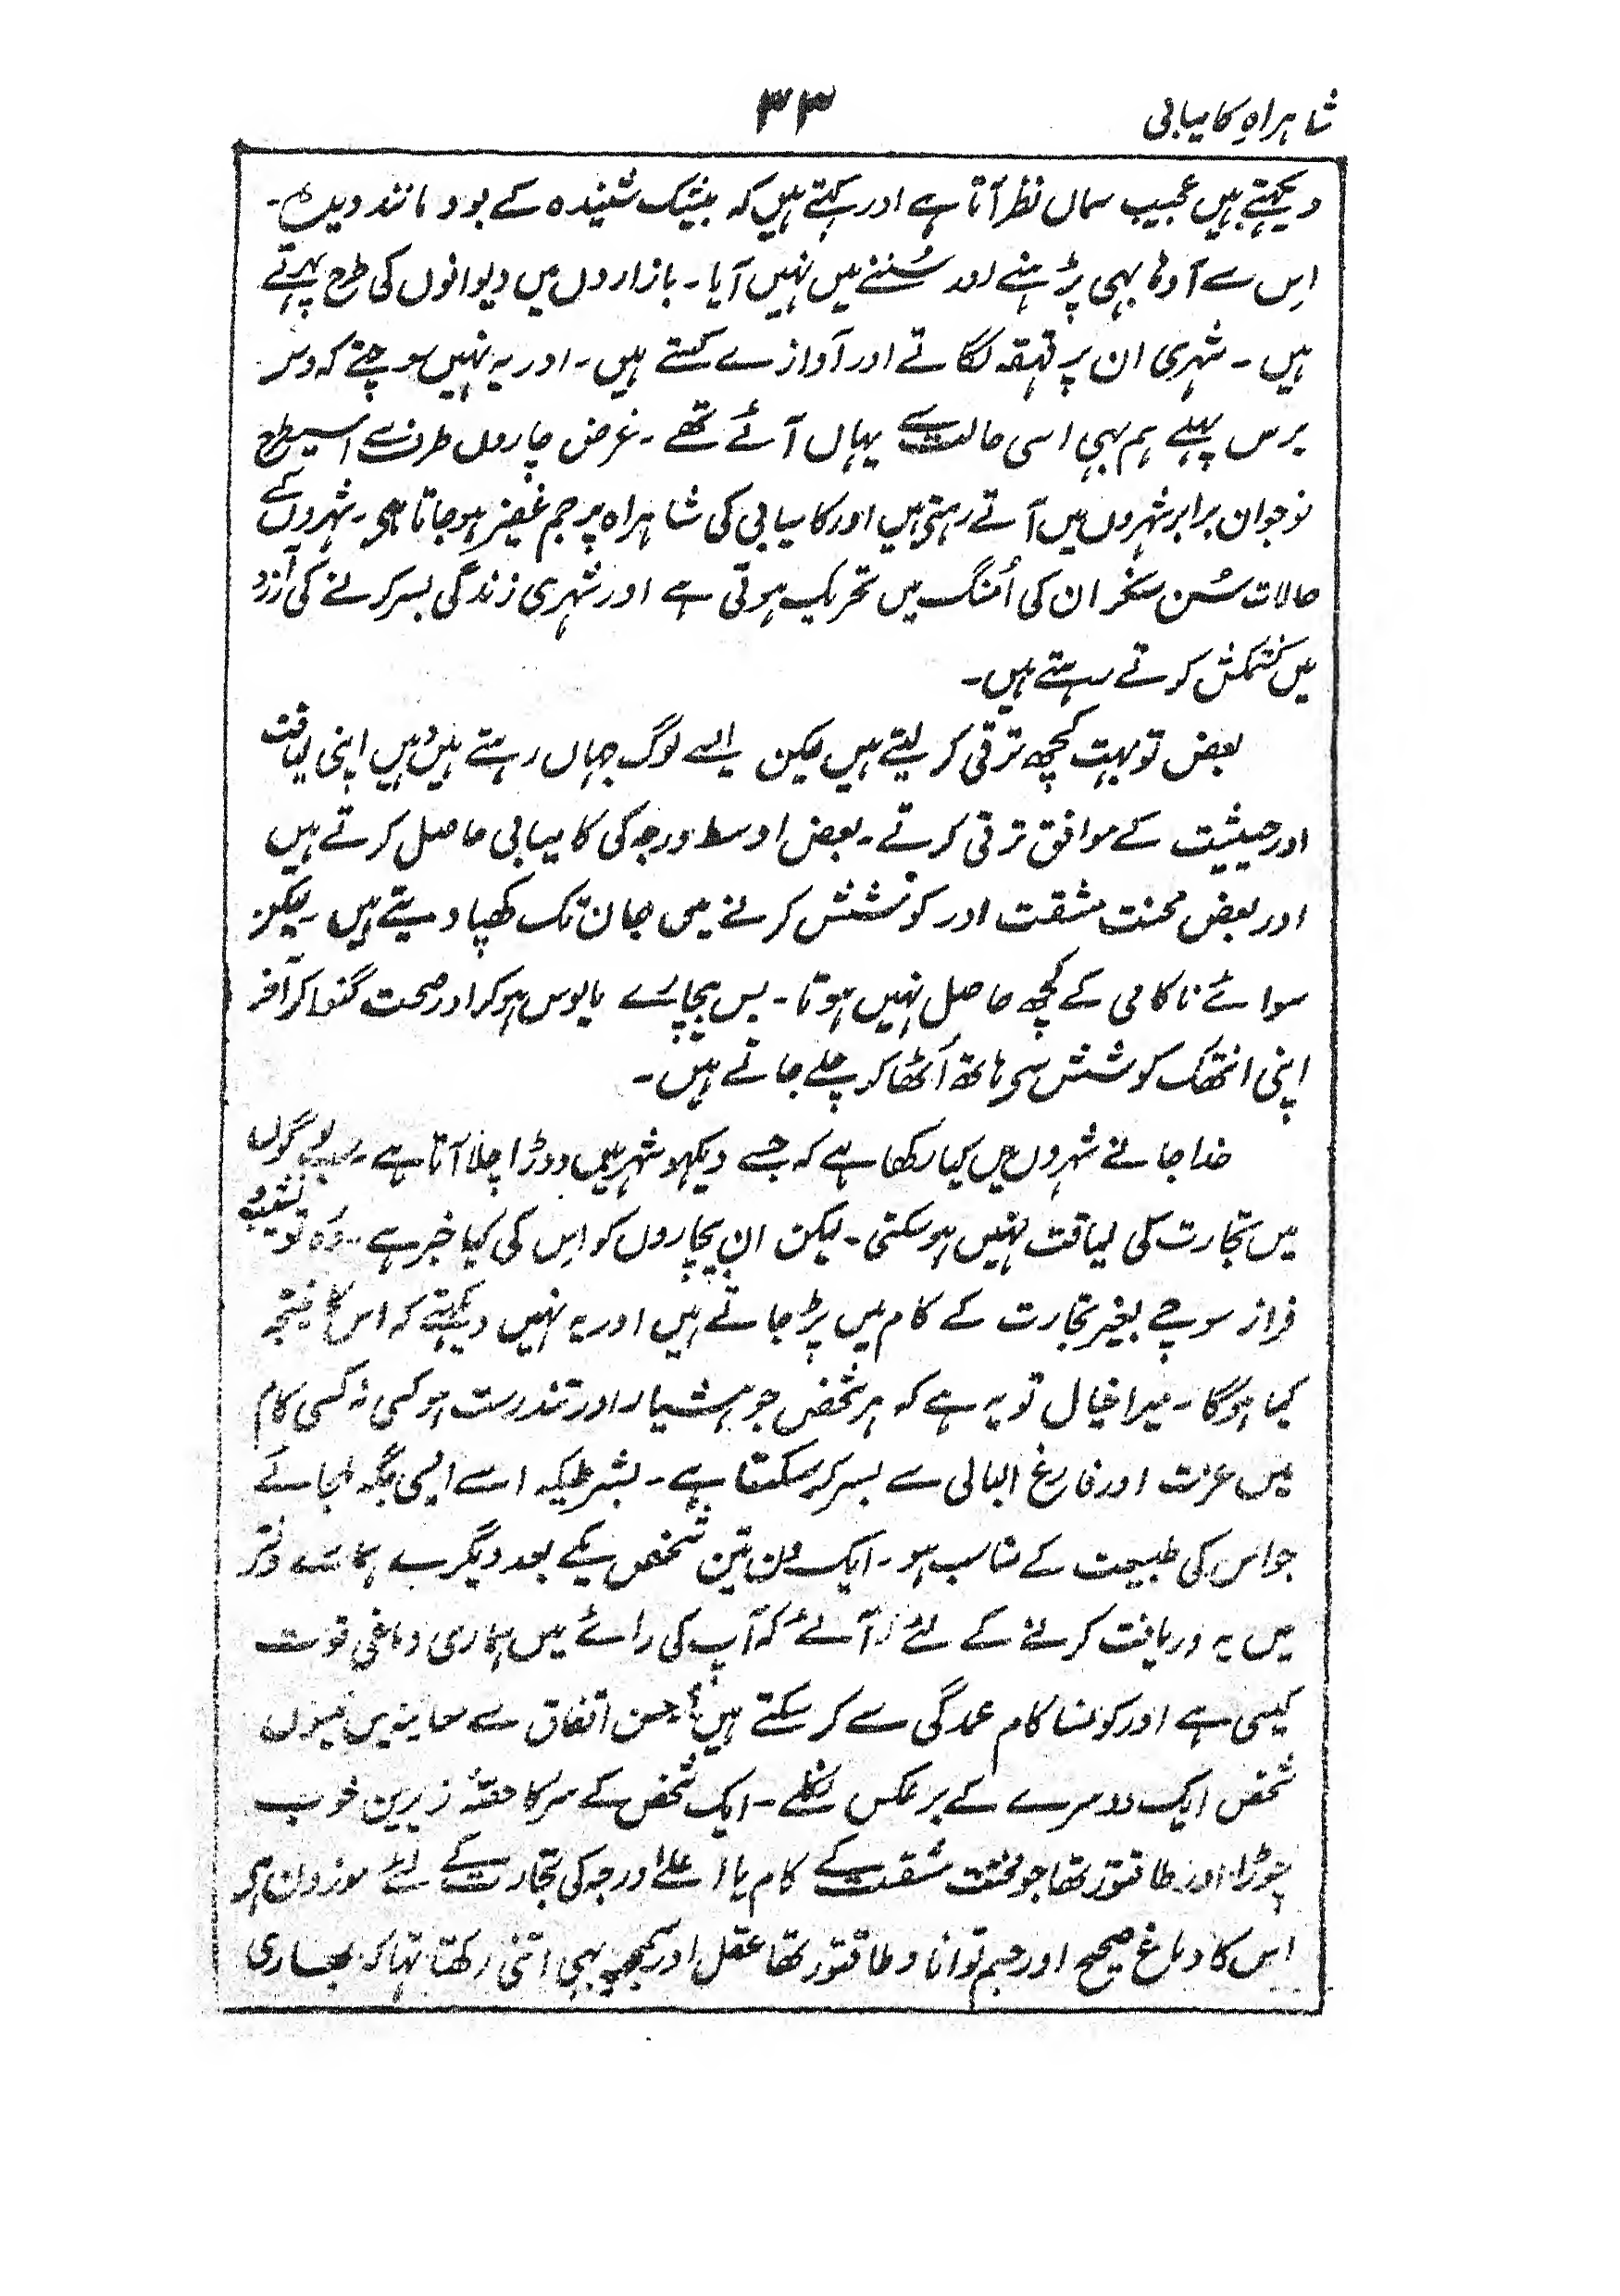 شاہراہِ کامیابی
۳۳
دیکہتے ہیں عجیب سماں نظر آتا ہے اور کہتے ہیں کہ بیشک شنیدہ کے بود مانند دیدہ۔
اِس سے آدہا بہی پڑہنے اور سُننے میں نہیں آیا۔ بازاروں میں دیوانوں کی طرح پہرتے
ہیں۔ شہری ان پر قہقہ لگاتے اور آوازے کستے ہیں۔ اور یہ نہیں سوچتے کہ دس
برس پہلے ہم بہی اسی حالت سے یہاں آئے تھے۔ غرض چاروں طرف سے اسیطرح
نوجوان برابر شہروں میں آتے رہتے ہیں اور کامیابی کی شاہراہ پر جم غفیر ہو جاتا ہے۔ شہروں کے
حالات سُن سنکر ان کی اُمنگ میں تحریک ہوتی ہے اور شہری زندگی بسر کرنے کی آرزو
میں کشمکش کرتے رہتے ہیں۔
بعض تو بہت کچھ ترقی کر لیتے ہیں لیکن ایسے لوگ جہاں رہتے ہیں وہیں اپنی لیاقت
اور حیثیت کے موافق ترقی کرتے۔ بعض اوسط درجہ کی کامیابی حاصل کرتے ہیں
اور بعض محنت مشقت اور کوشش کرنے میں جان تک کھپا دیتے ہیں۔ لیکن
سوائے ناکامی کے کچھ حاصل نہیں ہوتا۔ بس بیچارے مایوس ہو کر اور صحت گنوا کر آخر
اپنی انتھک کوشش سے ہاتھ اُٹھا کر چلے جاتے ہیں۔
خدا جانے شہروں میں کیا رکھا ہے کہ جسے دیکہو شہر میں دوڑا چلا آتا ہے۔ سب لوگوں
میں تجارت کی لیاقت نہیں ہو سکتی۔ لیکن ان بیچاروں کو اِس کی کیا خبر ہے۔ وُہ تو نشیب و
فراز سوچے بغیر تجارت کے کام میں پڑ جاتے ہیں اور یہ نہیں دیکہتے کہ اس کا نتیجہ
کیا ہوگا۔ میرا خیال تو یہ ہے کہ ہر شخص جو ہشیار اور تندرست ہو کسی نہ کسی کام
میں عزت اور فارغ البالی سے بسر کر سکتا ہے۔ بشرطیکہ اسے ایسی جگہ ملجائے
جو اس کی طبیعت کے مناسب ہو۔ ایک دن تین شخص یکے بعد دیگرے ہمارے دفتر
میں یہ دریافت کرنے کے لئے آئے کہ آپ کی رائے میں ہماری دماغی قوت
کیسی ہے اور کونسا کام عمدگی سے کر سکتے ہیں؟ حسن اتفاق سے معاینہ میں تینوں
شخص ایک دوسرے کے برعکس نکلے۔ ایک شخص کے سر کا حصّہ زیرین خوب
چوڑا اور طاقتور تھا جو محنت مشقت کے کام یا اعلےٰ درجہ کی تجارت کے لئے موزون ہے
اس کا دماغ صحیح اور جسم توانا و طاقتور تھا عقل اور سمجھ بہی اتنی رکھتا تہا کہ بھاری